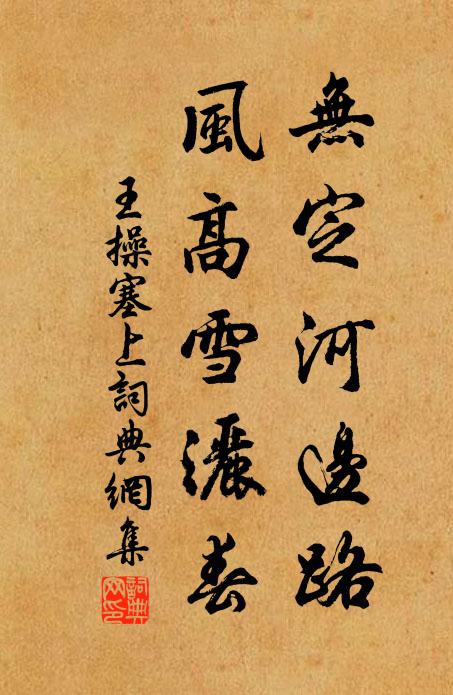 無定河邊路
風高雪灑春
王操塞上詞典網集
詞典網印